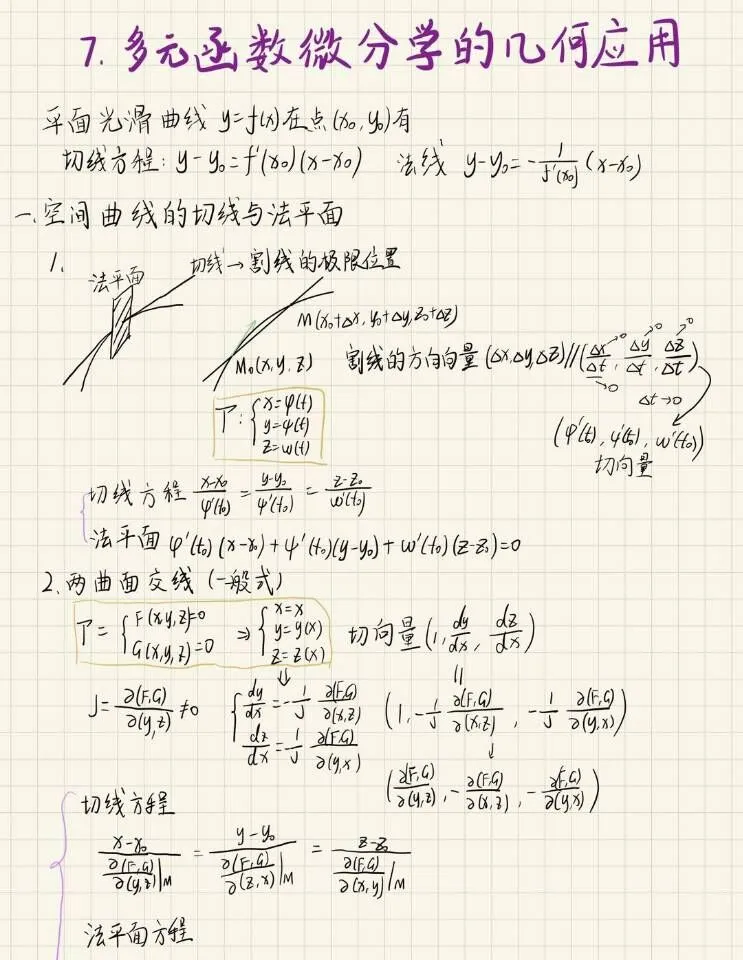 7. 多元函数微分学的几何应用
平面光滑曲线 y=f(x) 在点 (x₀, y₀) 有
切线方程: y-y₀=f'(x₀)(x-x₀)  法线 y-y₀=-1/f'(x₀) (x-x₀)
一.空间曲线的切线与法平面
1.
法平面
切线→割线的极限位置
M(x₀+Δx, y₀+Δy, z₀+Δz)
M₀(x, y, z)
割线的方向向量 (Δx,Δy,Δz)//(Δx/Δt, Δy/Δt, Δz/Δt)
→0 →0 →0
→0
Δt→0
Γ: { x=φ(t)
y=ψ(t)
z=ω(t)
(φ'(t₀), ψ'(t₀), ω'(t₀))
切向量
切线方程 (x-x₀)/φ'(t₀) = (y-y₀)/ψ'(t₀) = (z-z₀)/ω'(t₀)
法平面 φ'(t₀)(x-x₀)+ψ'(t₀)(y-y₀)+ω'(t₀)(z-z₀)=0
2.两曲面交线 (一般式)
Γ= { F(x,y,z)=0
G(x,y,z)=0
⇒ { x=x
y=y(x)
z=z(x)
切向量 (1, dy/dx, dz/dx)
J= ∂(F,G)/∂(y,z) ≠0
{ dy/dx = -1/J ∂(F,G)/∂(x,z)
dz/dx = -1/J ∂(F,G)/∂(y,x)
(1, -1/J ∂(F,G)/∂(x,z), -1/J ∂(F,G)/∂(y,x))
(∂(F,G)/∂(y,z), -∂(F,G)/∂(x,z), -∂(F,G)/∂(y,x))
切线方程
(x-x₀)/(∂(F,G)/∂(y,z)|M) = (y-y₀)/(∂(F,G)/∂(z,x)|M) = (z-z₀)/(∂(F,G)/∂(x,y)|M)
法平面方程